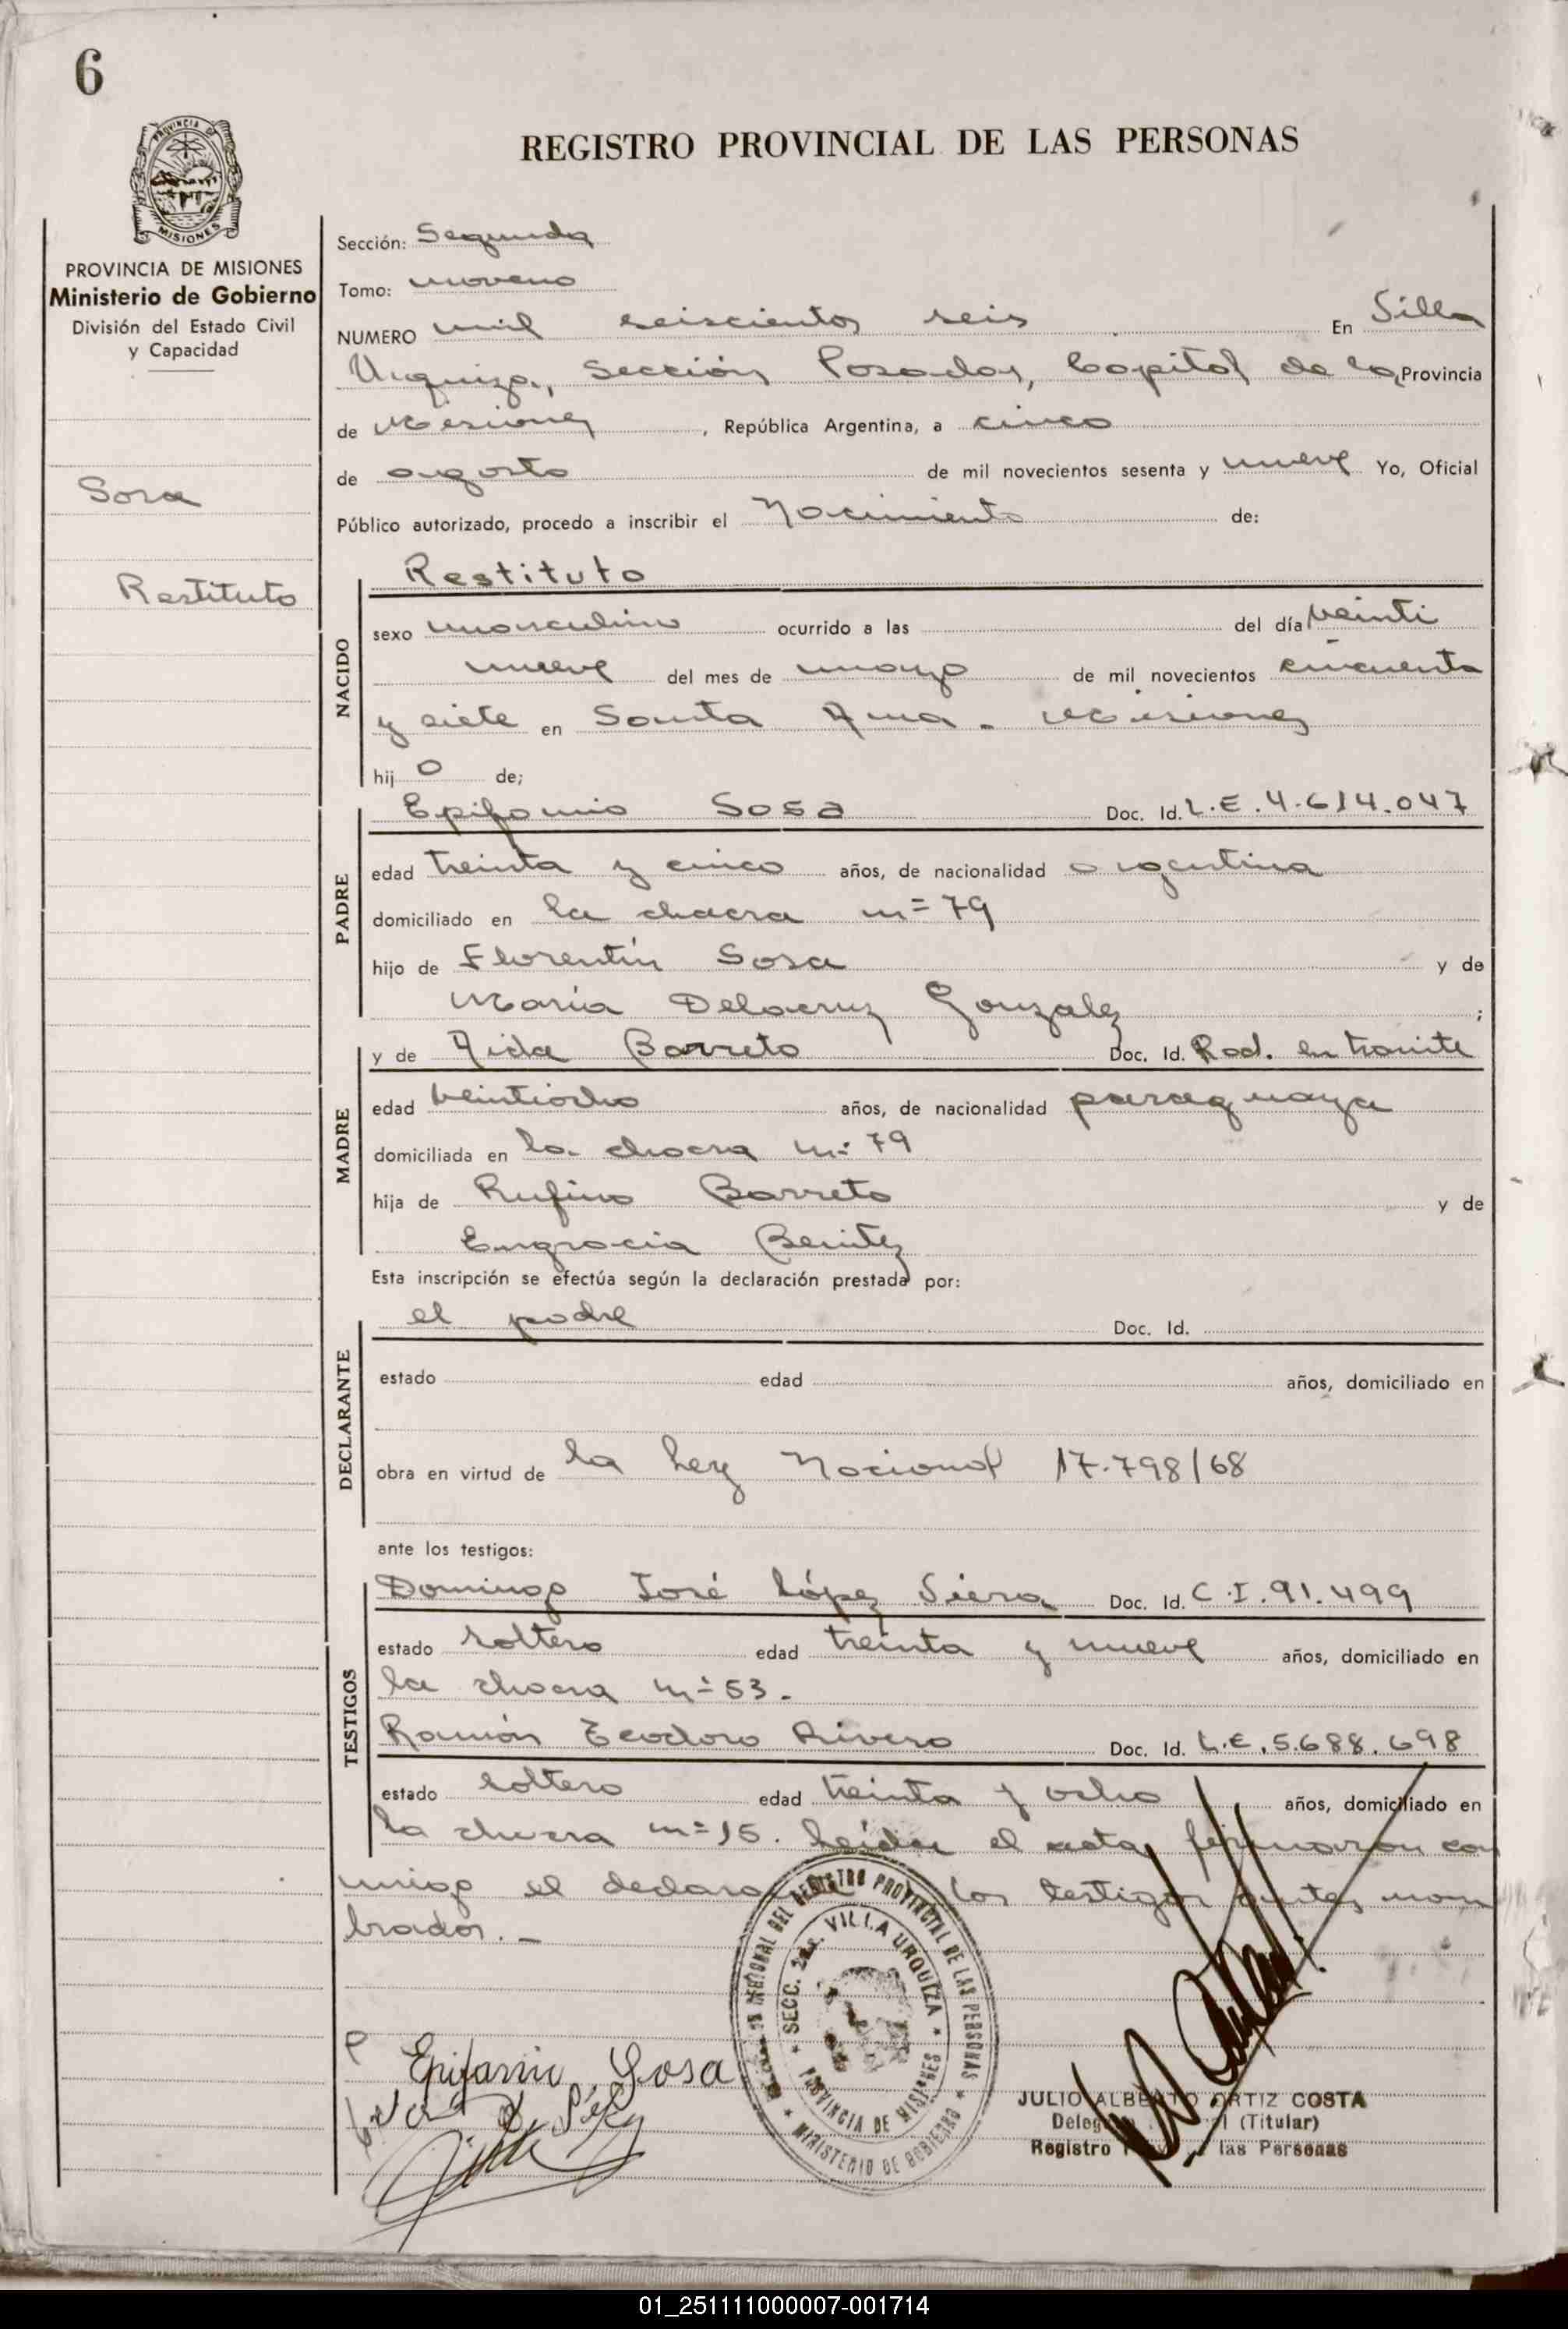 6
REGISTRO PROVINCIAL DE LAS PERSONAS
MISIONES
PROVINCIA DE MISIONES
Ministerio de Gobierno
División del Estado Civil
y Capacidad
Sosa
Restituto
Sección: Segunda
Tomo: noveno
NUMERO mil seiscientos seis En Villa
Urquiza, Sección Posadas, Capital de la Provincia
de Misiones, República Argentina, a cinco
de agosto de mil novecientos sesenta y nueve Yo, Oficial
Público autorizado, procedo a inscribir el Nacimiento de:
Restituto
NACIDO
sexo masculino ocurrido a las del día veinti
nueve del mes de marzo de mil novecientos cincuenta
y siete en Santa Ana - Misiones
hij o de;
PADRE
Epifanio Sosa Doc. Id. L.E. 4.614.047
edad treinta y cinco años, de nacionalidad argentina
domiciliado en la chacra nº 79
hijo de Florentín Sosa y de
María Delacruz Gonzalez ;
MADRE
y de Aida Barreto Doc. Id. Rad. en tramite
edad veintiocho años, de nacionalidad paraguaya
domiciliada en la chacra nº 79
hija de Rufino Barreto y de
Engracia Benitez
Esta inscripción se efectúa según la declaración prestada por:
DECLARANTE
el padre Doc. Id.
estado edad años, domiciliado en
obra en virtud de la Ley Nacional 17.798/68
ante los testigos:
TESTIGOS
Domingo José López Siera Doc. Id. C.I. 91.499
estado soltero edad treinta y nueve años, domiciliado en
la chacra nº 53.
Ramón Teodoro Rivero Doc. Id. L.E. 5.688.698
estado soltero edad treinta y ocho años, domiciliado en
la chacra nº 15. Leída el acta, firmaron con
migo el declarante los testigos antes nom
brados. -
REGIONAL DEL REGISTRO PROVINCIAL DE LAS PERSONAS
SECC. 2da. VILLA URQUIZA
PROVINCIA DE MISIONES
MINISTERIO DE GOBIERNO
Epifanio Sosa
JULIO ALBERTO ORTIZ COSTA
(Titular)
Registro las Personas
01_251111000007-001714